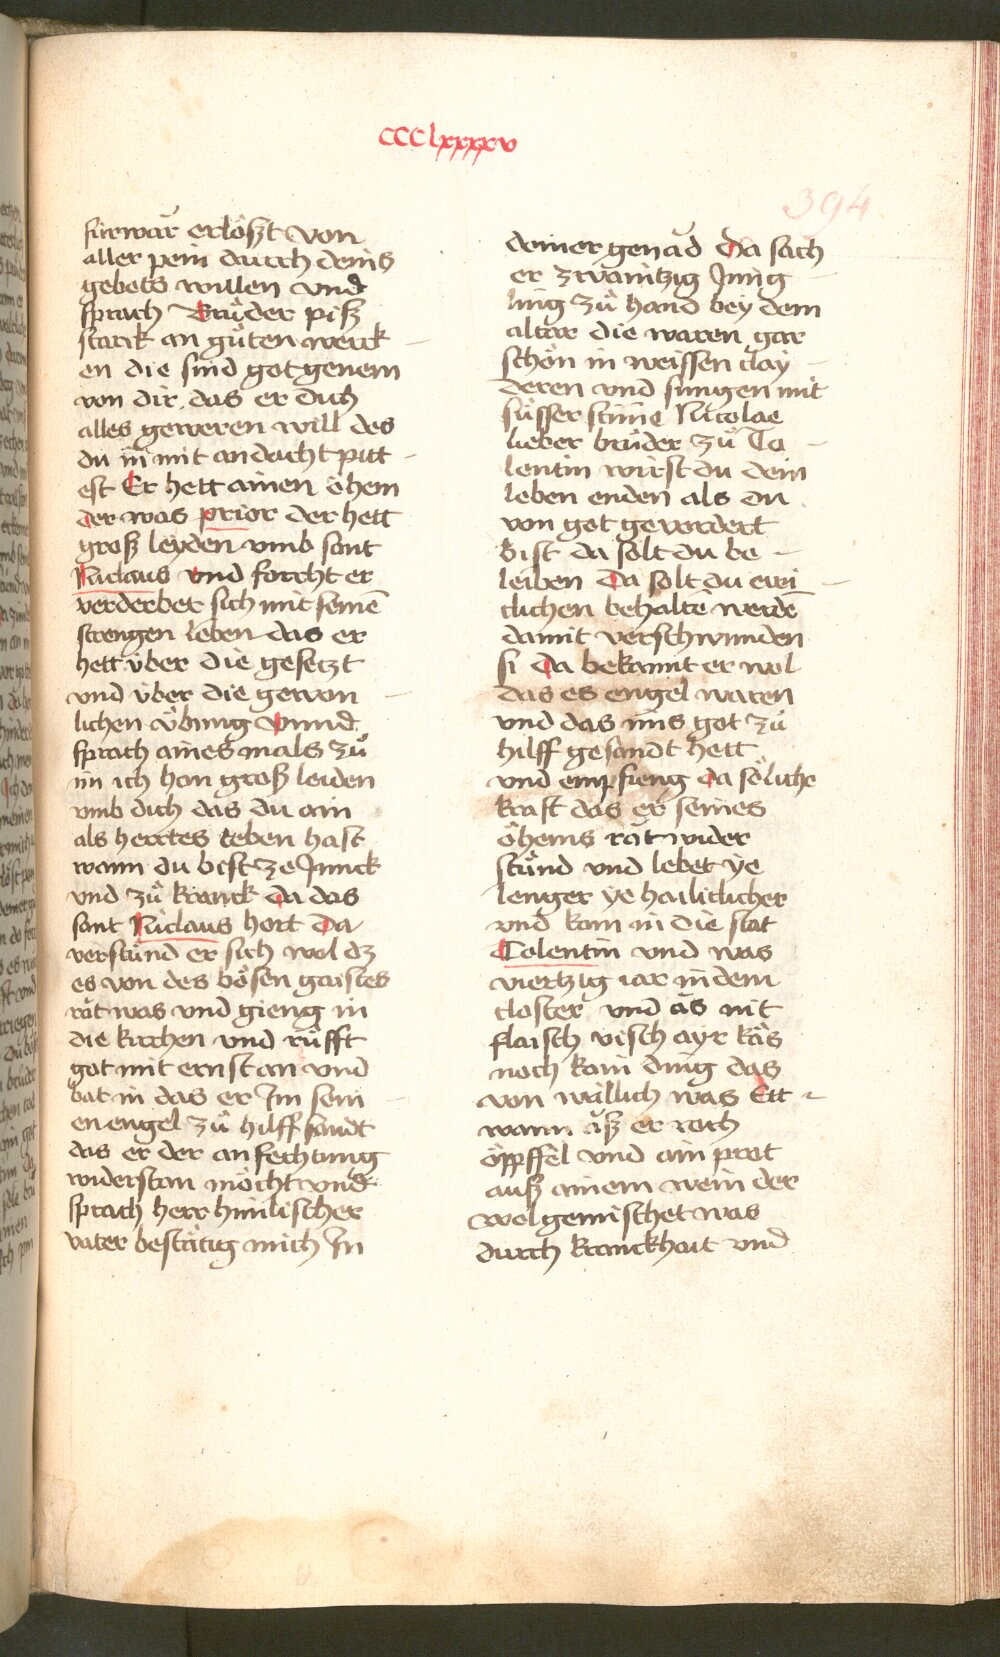 CCClxxxxv
394
fürwar erlößt von
aller pein durch deins
gebets willen vnd
sprach Brůder piß
starck an gůten werck
en die sind got genem
von dir das er dich
alles geweren will des
du in mit andacht pitt
est Er hett ainen öhem
der was prior der hett
groß leyden vmb sant
Niclaus vnd forcht er
verderbet sich mit seinē
strengen leben das er
hett über die gesetzt
vnd über die gewon
lichen Übung vnnd
sprach aines mals zů
im ich hon groß leiden
vmb dich das du ain
als hertes leben hast
wann du bist ze Junck
vnd zů kranck da das
sant Niclaus hort Da
verstůnd er sich wol dz
es von des bösen gaistes
rät was vnd gieng in
die kirchen vnd růfft
got mit ernst an vnd
bat in das er Im sein
en engel zů hilff sandt
das er der anfechtung
widerstan möcht vnd
sprach herr himlischer
vater bestätig mich In
deiner genad Da sach
er zwaintzig Jüng
ling zů hand bey dem
altar die waren gar
schön in weissen clay
deren vnd sungen mit
süsser stime Nicolae
lieber brůder zů To
lentin wirst du dein
leben enden als du
von got gevordert
bist da solt du be
leiben Da solt du ewi
clichen behaltē werdē
damit verschwunden
si Da bekannt er wol
das es engel waren
vnd das ims got zů
hilff gesandt hett
vnd empfieng da söliche
kraft das er seines
öhems rät wider
stůnd vnd lebet ye
lenger ye hailiclicher
vnd kam in die stat
Tolentin vnd was
viertzig iar in dem
closter vnd äs nit
flaisch visch ayr käs
noch kain ding das
von millich was Ett
wann äß er roch
öppffel vnd ain prot
auß ainem wein der
wol gemischet was
durch kranckhait vnd